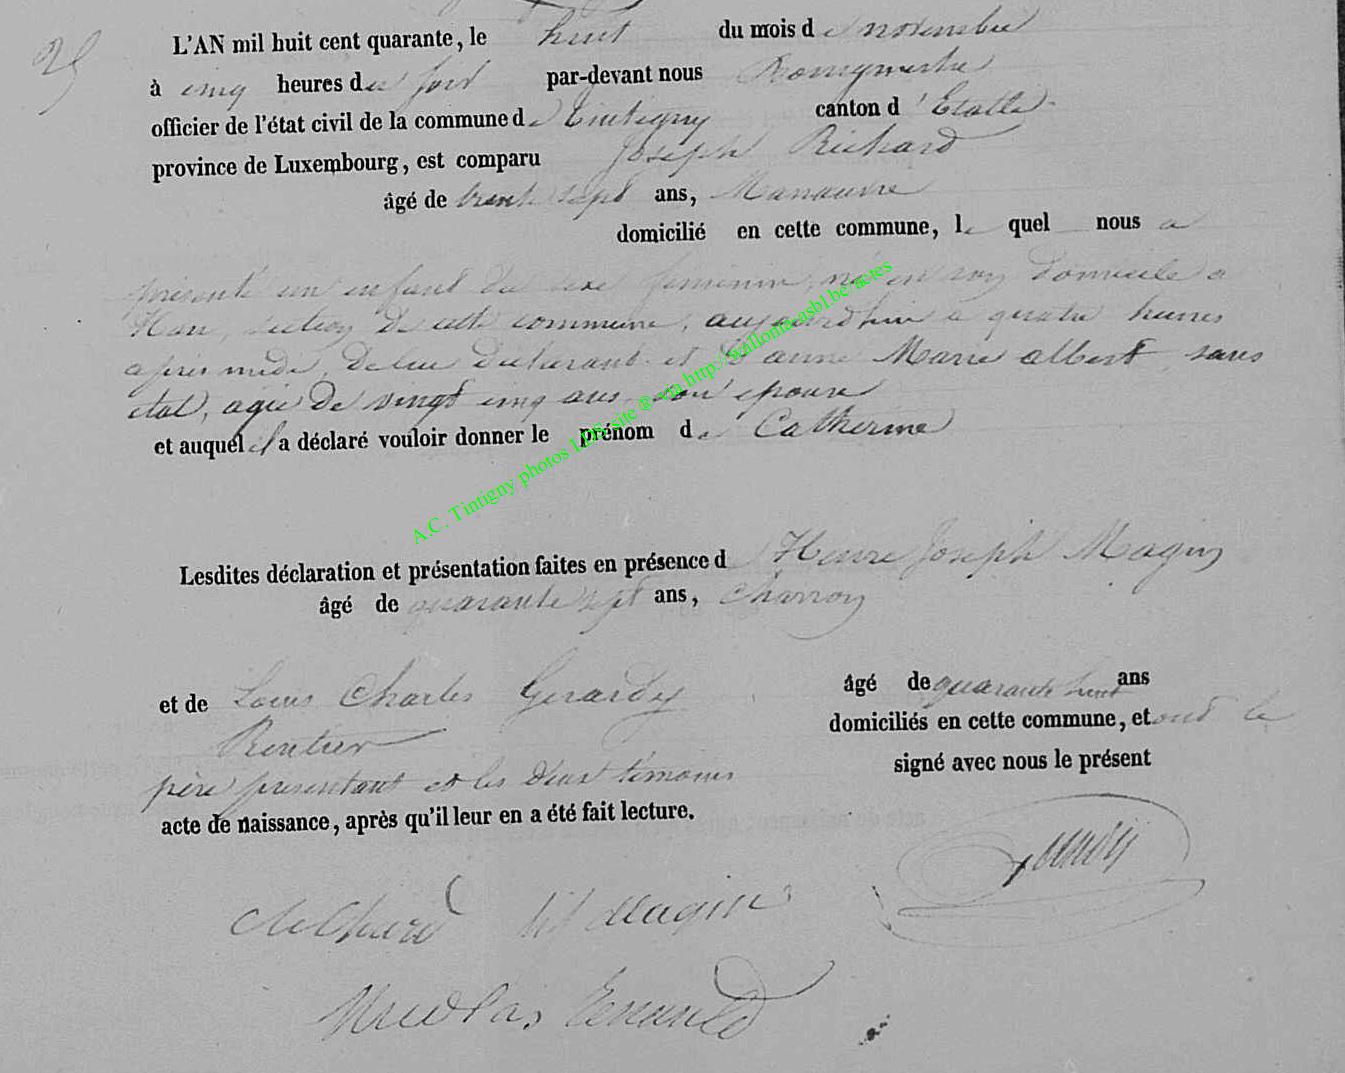 25
L'AN mil huit cent quarante, le huit du mois de novembre
à cinq heures du soir par-devant nous Bourgmestre
officier de l'état civil de la commune de Tintigny canton d'Etalle
province de Luxembourg, est comparu Joseph Richard
âgé de trente sept ans, Manœuvre
domicilié en cette commune, le quel nous a
présenté un enfant du sexe féminin, né en son domicile a
Han, section de cette commune, aujourd'hui a quatre heures
après midi, de lui déclarant et d'anne Marie albert, sans
etat, agée de vingt cinq ans, son épouse
et auquel il a déclaré vouloir donner le prénom de Catherine
A.C. Tintigny photos LDS site @ via http://wallonia-asbl.be/actes
Lesdites déclaration et présentation faites en présence d Henri Joseph Magin
âgé de quarante sept ans, charron
et de Louis Charles Gerardy âgé de quarante huit ans
Rentier domiciliés en cette commune, et ont le
signé avec nous le présent
père présentant et les deux témoins
acte de naissance, après qu'il leur en a été fait lecture.
Magin
Nicolas